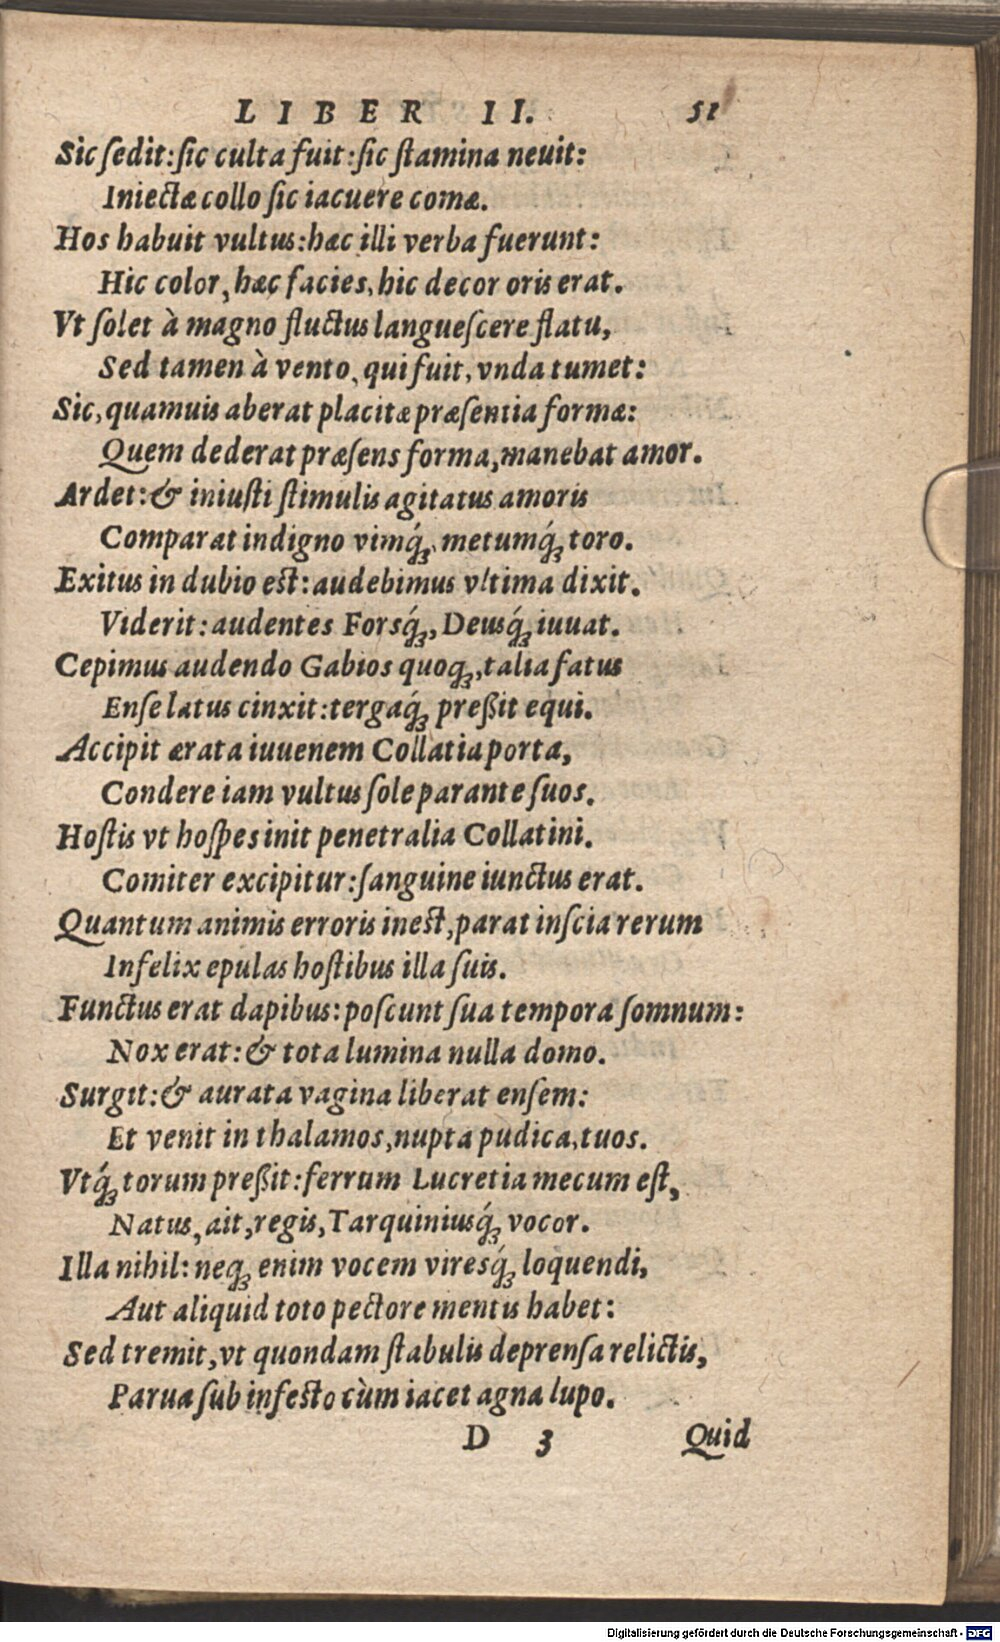 LIBER II. 51
Sic ſedit: ſic culta fuit: ſic ſtamina neuit:
Iniectæ collo ſic iacuere comæ.
Hos habuit vultus: hæc illi verba fuerunt:
Hic color, hæc facies, hic decor oris erat.
Vt ſolet à magno fluctus langueſcere flatu,
Sed tamen à vento, qui fuit, vnda tumet:
Sic, quamuis aberat placitæ præſentia formæ:
Quem dederat præſens forma, manebat amor.
Ardet: & iniuſti ſtimulis agitatus amoris
Comparat indigno vimq́₃, metumq́₃ toro.
Exitus in dubio eſt: audebimus vltima dixit.
Viderit: audentes Forsq́₃, Deusq́₃ iuuat.
Cepimus audendo Gabios quoq₃, talia fatus
Enſe latus cinxit: tergaq́₃ preßit equi.
Accipit ærata iuuenem Collatia porta,
Condere iam vultus ſole parante ſuos.
Hoſtis vt hoſpes init penetralia Collatini.
Comiter excipitur: ſanguine iunctus erat.
Quantum animis erroris ineſt, parat inſcia rerum
Infelix epulas hoſtibus illa ſuis.
Functus erat dapibus: poſcunt ſua tempora ſomnum:
Nox erat: & tota lumina nulla domo.
Surgit: & aurata vagina liberat enſem:
Et venit in thalamos, nupta pudica, tuos.
Vtq́₃ torum preßit: ferrum Lucretia mecum eſt,
Natus, ait, regis, Tarquiniusq́₃ vocor.
Illa nihil: neq₃ enim vocem viresq́₃ loquendi,
Aut aliquid toto pectore mentis habet:
Sed tremit, vt quondam ſtabulis deprenſa relictis,
Parua ſub infeſto cùm iacet agna lupo.
D 3 Quid
Digitalisierung gefördert durch die Deutsche Forschungsgemeinschaft - DFG